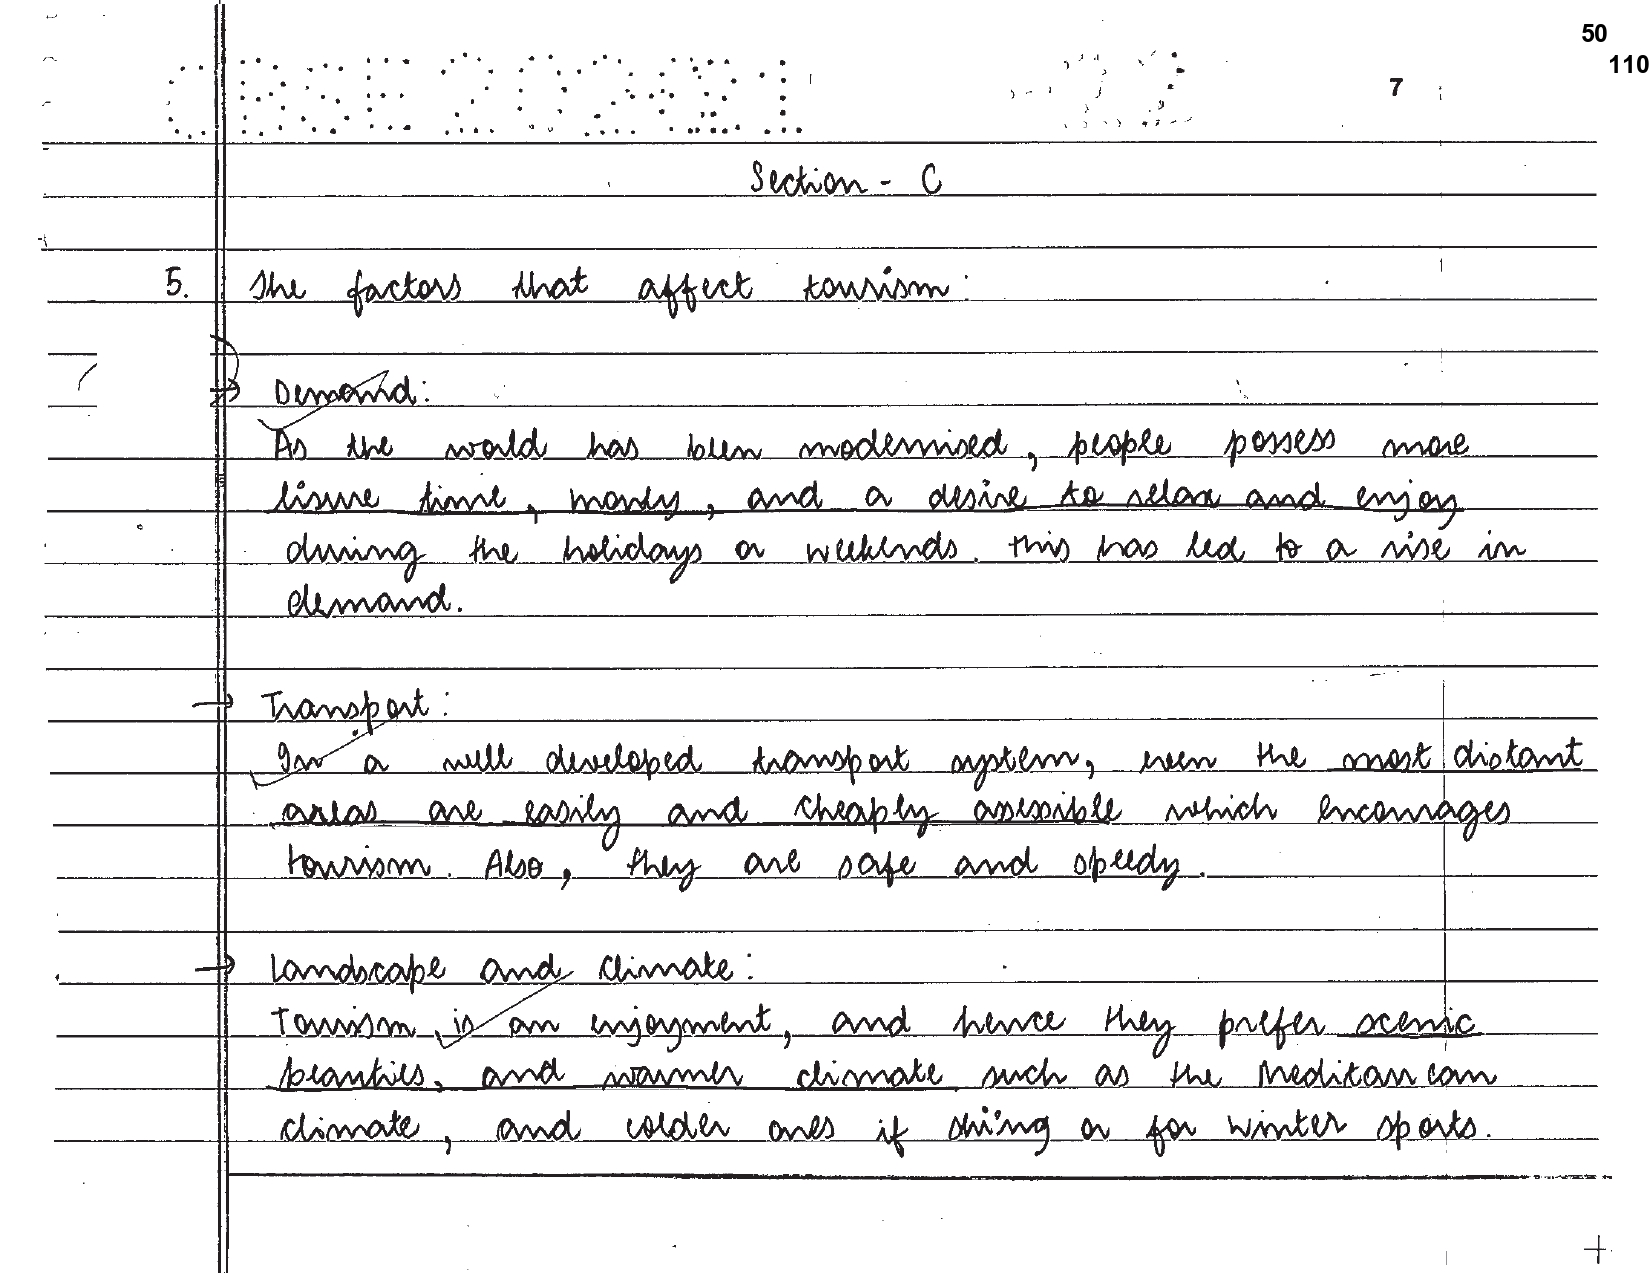 50
110
7
Section - C
5. The factors that affect tourism:
→ Demand:
As the world has been modernised, people possess more
lisure time, money, and a desire to relax and enjoy
during the holidays or weekends. This has led to a rise in
demand.
→ Transport:
In a well developed transport system, even the most distant
areas are easily and cheaply assessible which encourages
tourism. Also, they are safe and speedy.
→ Landscape and Climate:
Tourism is an enjoyment, and hence they prefer scenic
beauties, and warmer climate such as the Meditarrean
climate, and colder ones if skiing or for winter sports.